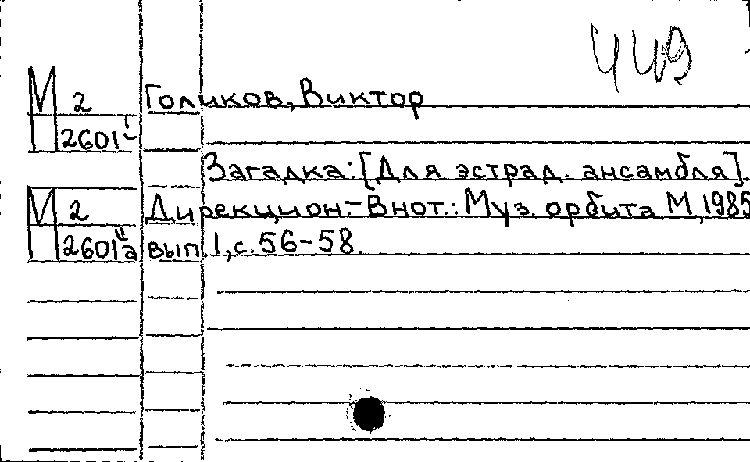 449
М 2 Голиков, Виктор
2601 I
Загадка: [Для эстрад. ансамбля].
М 2 Дирекцион.- В нот.: Муз. орбита М, 1985
2601 IIа вып. 1, с. 56-58.